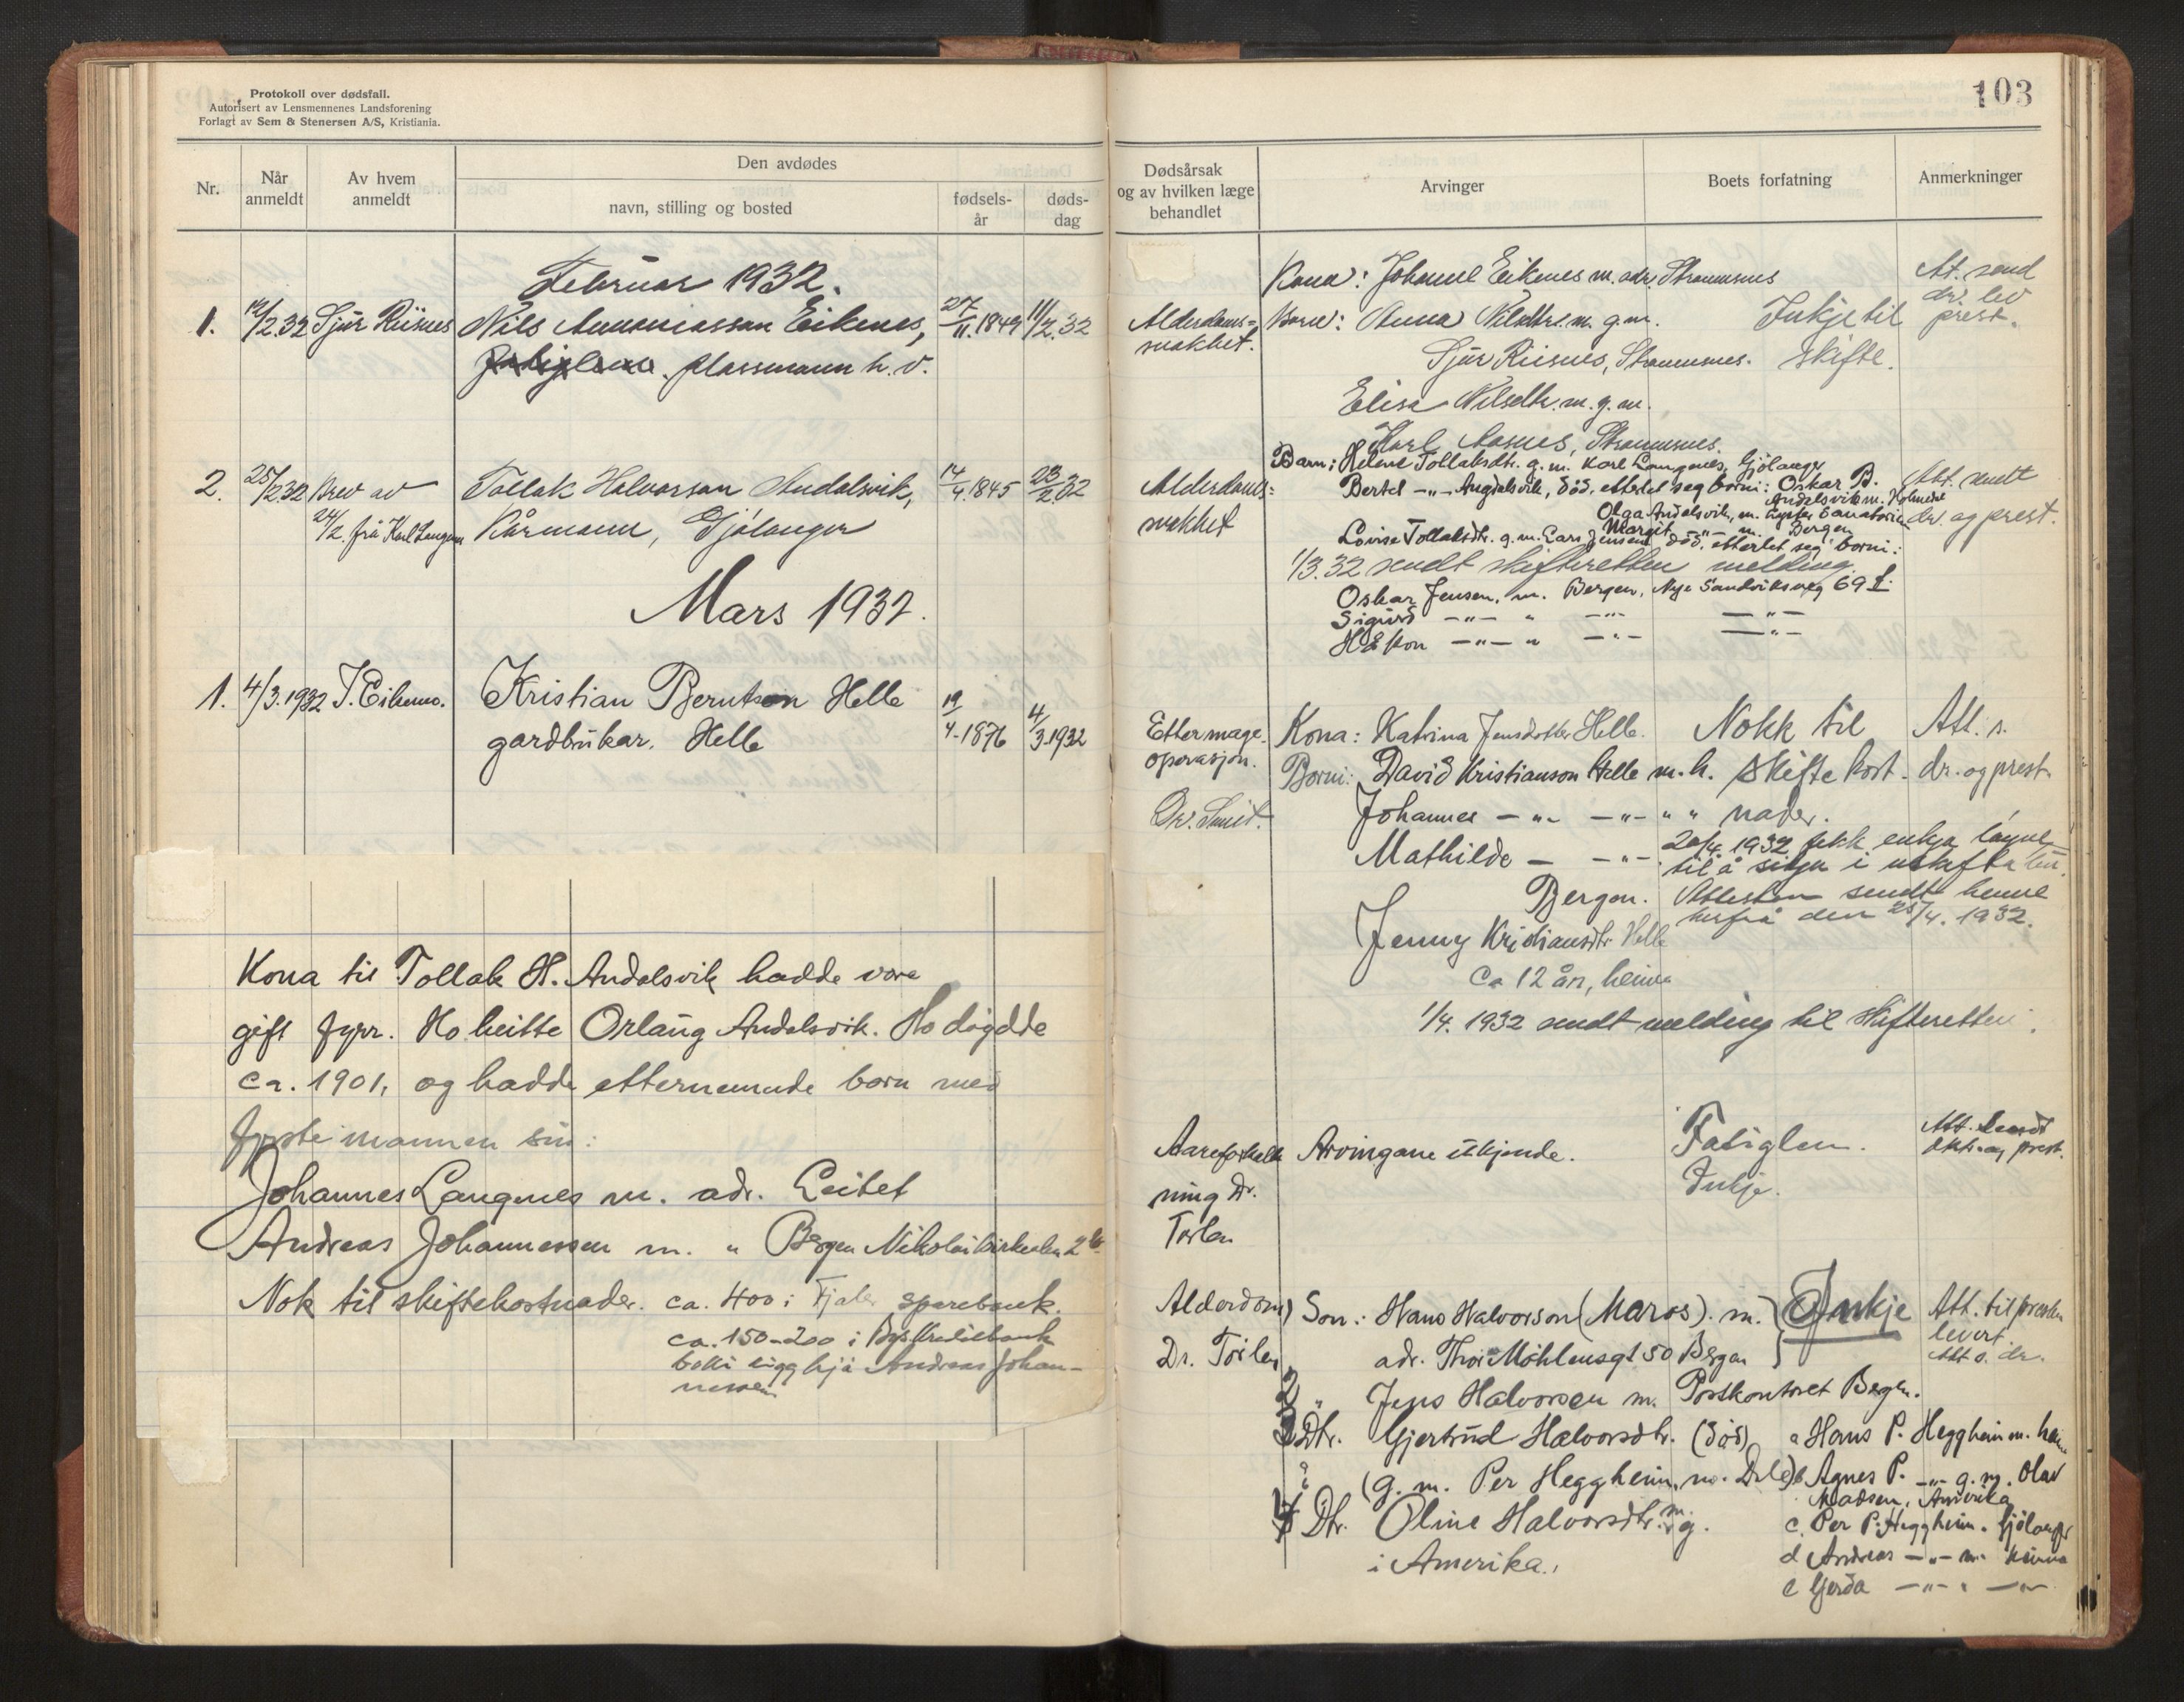 Protokoll over dødsfall.
Autorisert av Lensmennenes Landsforening
Forlagt av Sem & Stenersen A/S, Kristiania.
Nr.
Når anmeldt
Av hvem anmeldt
Den avdødes
navn, stilling og bosted
fødsels-år
døds-dag
Februar 1932.
1. 12/2.32 Sjur Riisnes Nils Eikenes, 27/11.1849 11/2.32
plassmann h. v.
2. 25/2.32 Brev av Tollak Halvorson Andalsvik, 14/4.1845 23/2.32
24/2. frå Karl Langenes Kårmann, Gjølanger
Mars 1932.
1. 4/3.1932 J. Eikemo. Kristian Berntson Helle 19/4-1876 4/3.1932
gardbrukar. Helle
Kona til Tollak H. Andalsvik hadde vore
gift fyrr. Ho heitte Orlaug Andalsvik. Ho døydde
ca. 1901, og hadde etternemnde born med
fyrste mannen sin:
Johannes Langenes m. adr. Leitet
Andreas Johannessen m. " Bergen Nikolaikirkealm 2
Nok til skiftekostnader. ca. 400 i Fjaler sparebank.
ca. 150-200 i
boki ligg hjå Andreas Johan-
nessen
103
Dødsårsak og av hvilken læge behandlet
Arvinger
Boets forfatning
Anmerkninger
Kona: Johanne Eikenes m. adr. Straumsnes At. send
Alderdoms= Born: Anna Nilsdtr. m. g. m. Inkje til dr. lev prest.
svakhet. Sjur Riisnes, Straumsnes. skifte.
Elisa Nilsdtr. m. g. m.
Karl Aasnes, Straumsnes.
Barn: Helene Tollaksdtr. g. m. Karl Langenes, Gjølanger
Alderdoms= Bertel -"- Andalsvik, død, etterlet seg borni: Oskar B. Att. sendt
svakhet Andalsvik m. Holmedal
Olga Andalsvik, m. Lyster Sanatorie dr. og prest.
Margit -"- m. Bergen
Lovise Tollaksdtr. g. m. Lars Jensen død, etterlet seg borni:
1/3.32 sendt skifteretten melding.
Oskar Jensen, m. Bergen, Nye Sandviksveg 69
Sigurd -"- " -"- -"-
Håkon -"- " -"- -"-
Etter mage- Kona: Katrina Jensdotter Helle. Nokk til Att. s.
operasjon. Borni: David Kristianson Helle m. h. skiftekost- dr. og prest.
Dr. Smit. Johannes -"- -"- " " nader.
Mathilde - -"- 20/4 1932 fekk enkja løyve
til å sitja i uskifta bu.
Bergen. Attesten sendt henne
herfrå den 25/4. 1932.
Jenny Kristiansdtr Helle
ca 12 år, heime
1/4. 1932 sendt melding til skifteretten.
Aareforkalk- Arvingane ukjende. Fatiglem. Att. sendt
ning Dr. Inkje. dr. og prest.
Torlen
Alderdom) Son: Hans Halvorson (Maros). m. } Inkje Att. til presten
levert.
Dr. Torlen adr. Thor Møhlensgt 50 Bergen Att s. dr.
2 " Jens Halvorsen m. Postkontoret Bergen.
3 Dtr. Gjertrud Halvorsdtr. (død) a Hans P. Heggheim m.
(g. m. Per Heggheim, m. Dale) b Agnes P. -"- g. m. Olav
Madsen, Amerika
4 Dtr. Oline Halvorsdtr. m. g. c. Per P. Heggheim. Gjølanger
i Amerika. d Andreas -"- m. heime
e Gjerda -"- " -"-